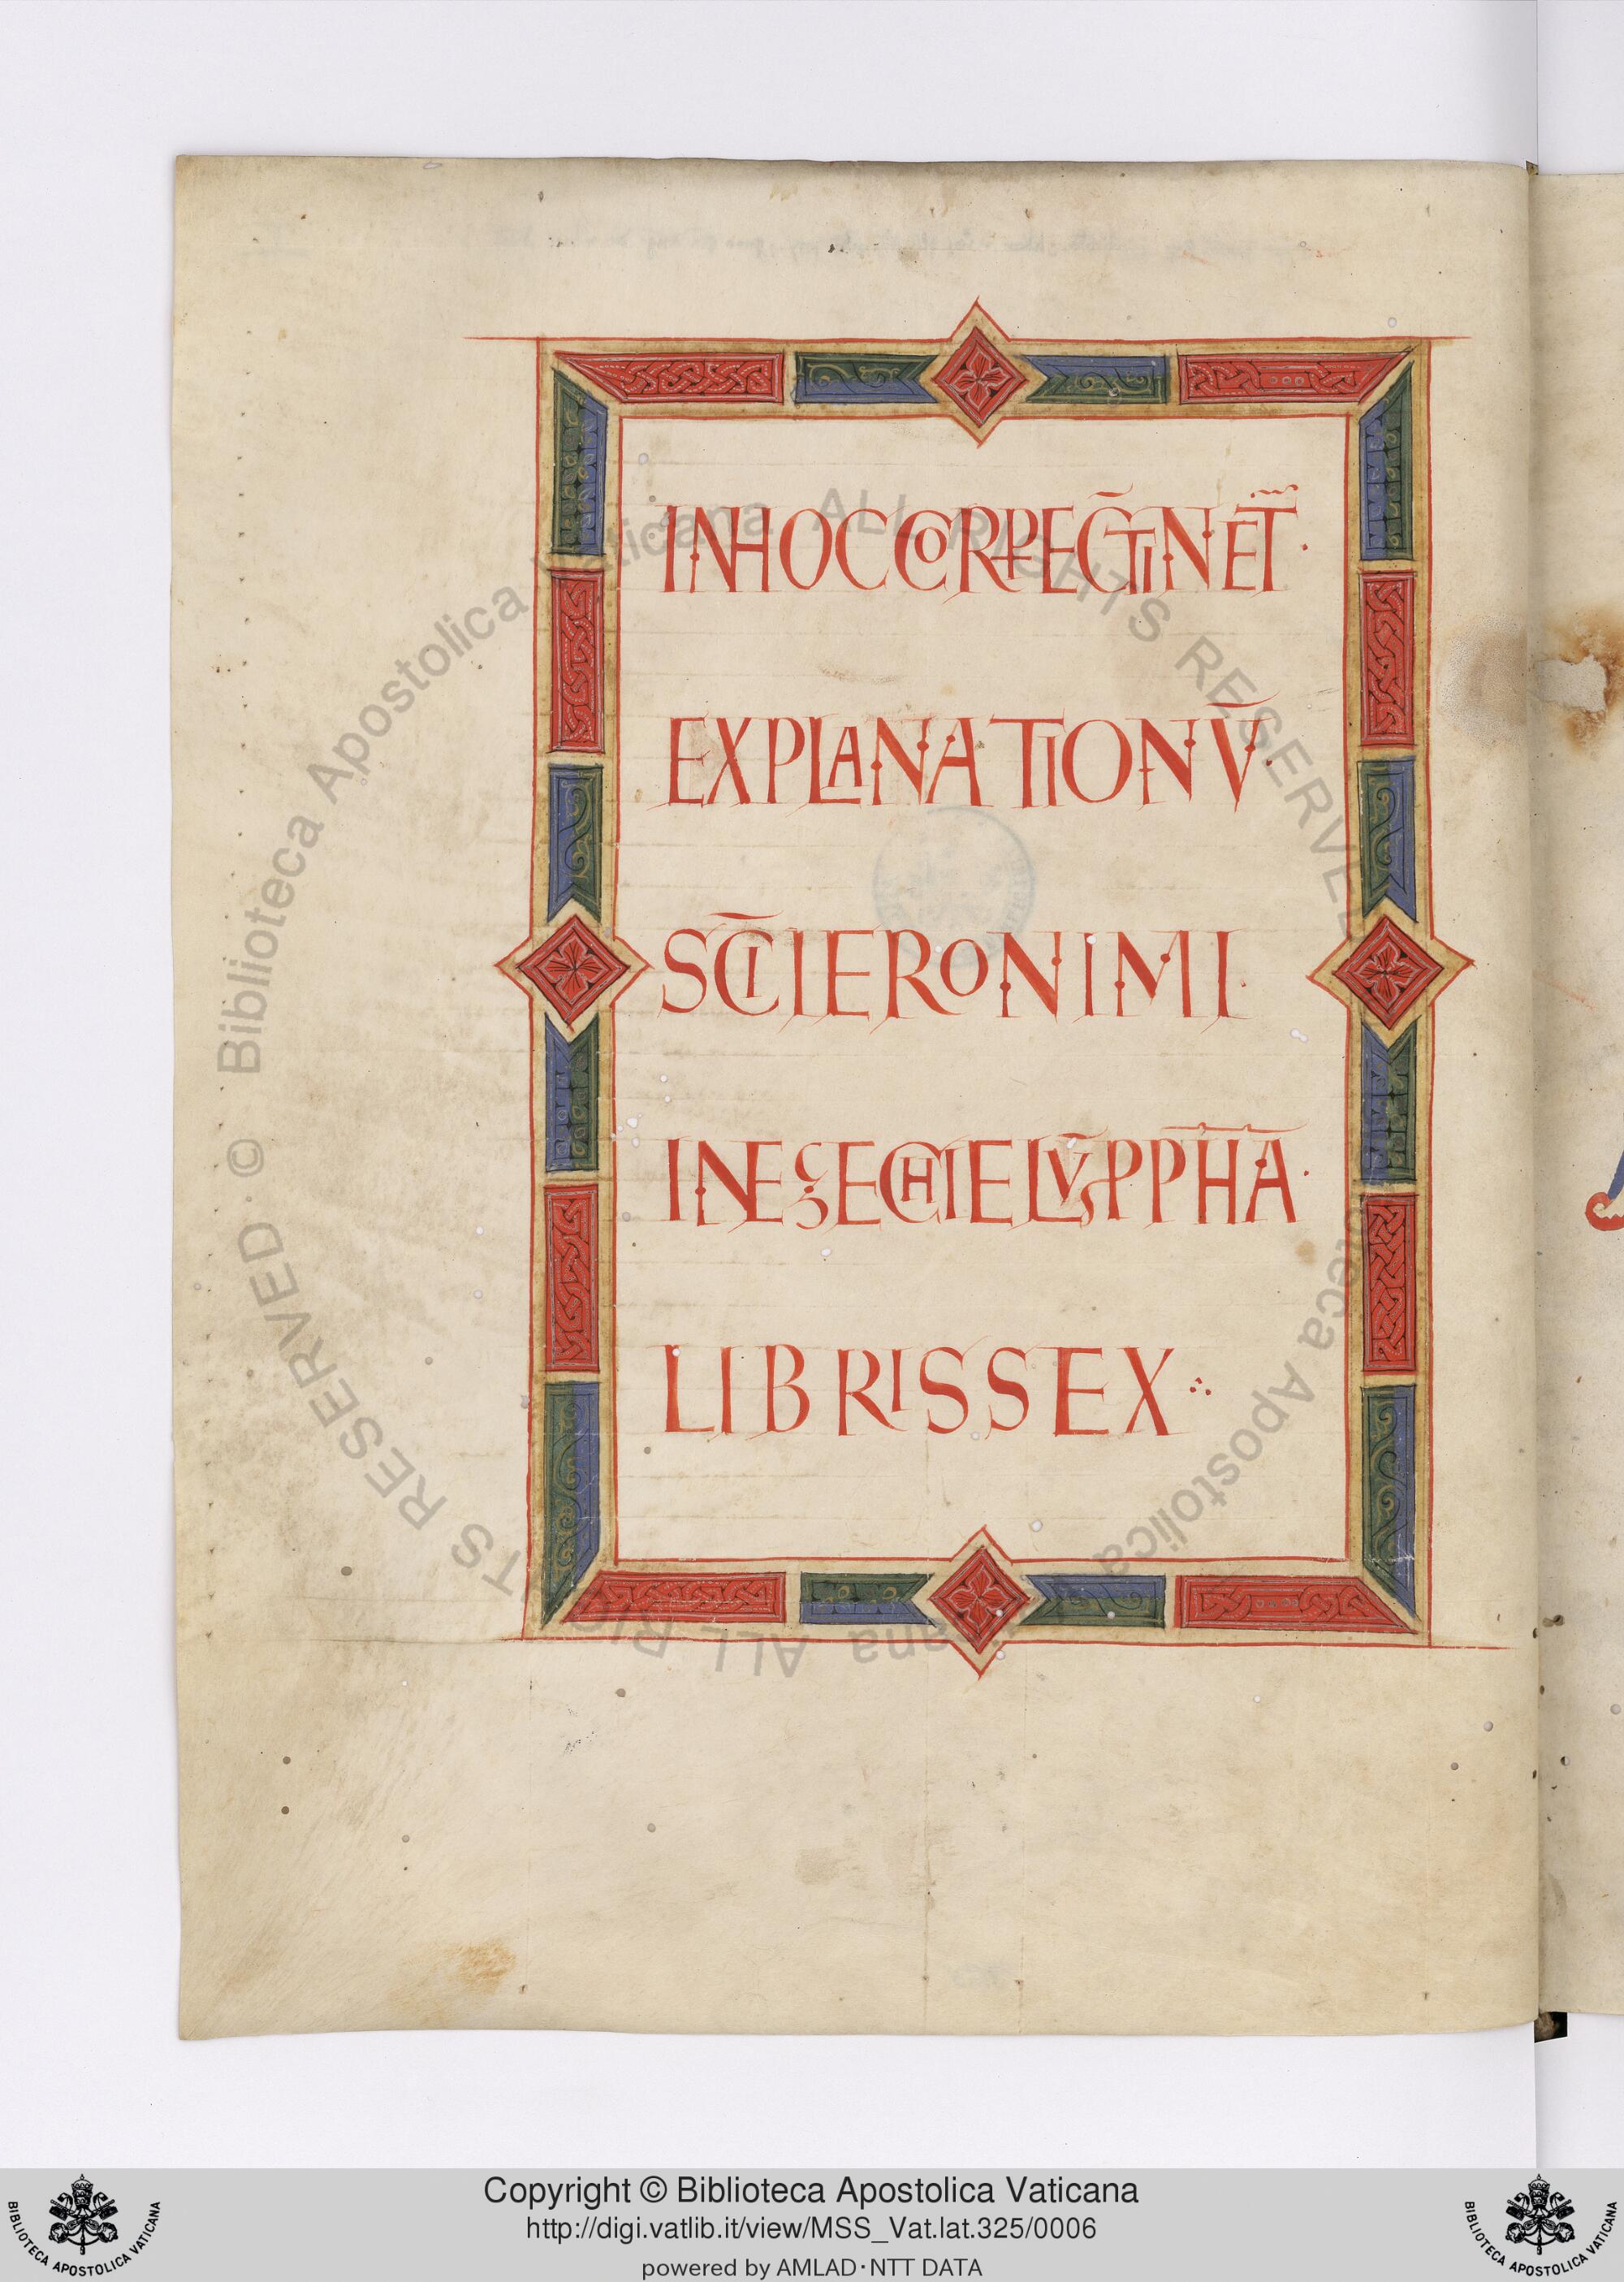 INHOC CORꝐE C̄TINET̄·
EXPLANATIONV̄·
SC̄I IERONIMI·
IN EZECHIELV̄ ꝓPH̄Ā·
LIBRIS SEX ∴
© Biblioteca Apostolica Vaticana ALL RIGHTS RESERVED
· © Biblioteca Apostolica Vaticana ALL RIGHTS RESERVED ·
Copyright © Biblioteca Apostolica Vaticana
http://digi.vatlib.it/view/MSS_Vat.lat.325/0006
powered by AMLAD·NTT DATA
BIBLIOTECA APOSTOLICA VATICANA
BIBLIOTECA APOSTOLICA VATICANA